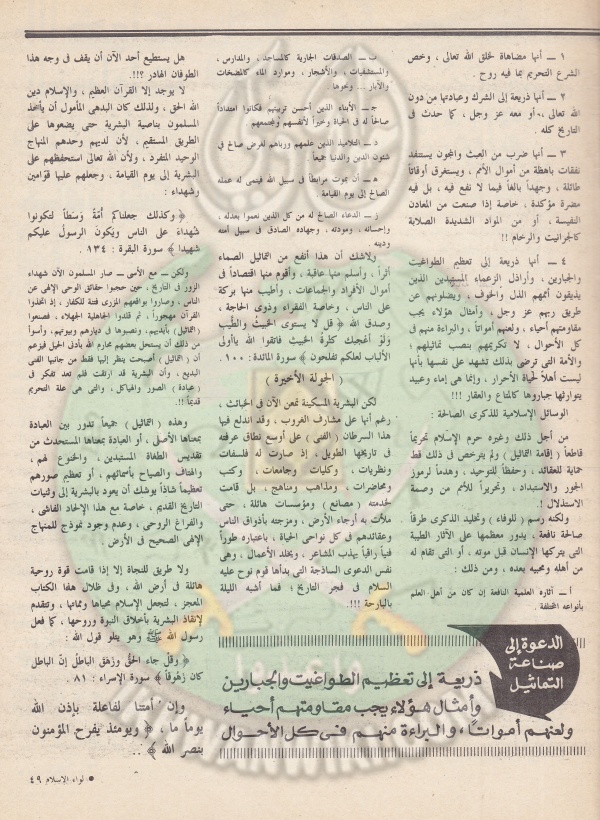 ١ ــ أنها مضاهاة لخلق الله تعالى ، وخص
الشرع التحريم بما فيه روح .
٢ ــ أنها ذريعة إلى الشرك وعبادتها من دون
الله تعالى ، أو معه عز وجل ، كما حدث فى
التاريخ كله .
٣ ــ أنها ضرب من العبث والمجون يستنفد
نفقات باهظة من أموال الأمم ، ويستغرق أوقاتاً
طائلة ، وجهداً بالغاً فيما لا نفع فيه ، بل فيه
مضرة مؤكدة ، خاصة إذا صنعت من المعادن
النفيسة ، أو من المواد الشديدة الصلابة
كالجرانيت والرخام !!
٤ ــ أنها ذريعة إلى تعظيم الطواغيت
والجبارين ، وأراذل الزعماء المستبدين الذين
يذيقون أمهم الذل والخوف ، ويضلونهم عن
طريق ربهم عز وجل ، وأمثال هؤلاء يجب
مقاومتهم أحياء ، ولعنهم أمواتاً ، والبراءة منهم فى
كل الأحوال ، لا تكريمهم بنصب تماثيلهم ؛
والأمة التى ترضى بذلك تشهد على نفسها بأنها
ليست أهلاً لحياة الأحرار ، وإنما هى إماء وعبيد
يتوارثها جباروها كالمتاع والعقار !!!
الوسائل الإسلامية للذكرى الصالحة :
من أجل ذلك وغيره حرم الإسلام تحريماً
قاطعاً ( إقامة التماثيل ) ولم يترخص فى ذلك قط
حماية للعقائد ، وحفظاً للتوحيد ، وهدماً لرموز
الجور والاستبداد ، وتحريراً للأمم من وصمة
الاستذلال !.
ولكنه رسم ( للوفاء ) وتخليد الذكرى طرقاً
صالحة نافعة ، يدور معظمها على الآثار الطيبة
التى يتركها الإنسان قبل موته ، أو التى تقام له
من أهله ومحبيه بعده ، ومن ذلك :
أ ــ آثاره العلمية النافعة إن كان من أهل العلم
بأنواعه المختلفة .
ب ــ الصدقات الجارية كالمساجد ، والمدارس ،
والمستشفيات ، والأشجار ، وموارد الماء كالمضخات
والآبار ... ونحوها .
جـ ــ الأبناء الذين أحسن تربيتهم فكانوا امتداداً
صالحاً له فى الحياة وخيراً لأنفسهم ولمجتمعهم .
د ــ التلاميذ الذين علمهم ورباهم لغرض صالح فى
شئون الدين والدنيا جميعاً .
هـ ــ أن يموت مرابطاً فى سبيل الله فينمى له عمله
الصالح إلى يوم القيامة .
ز ــ الدعاء الصالح له من كل الذين نعموا بعدله ،
وإحسانه ، ومودته ، وجهاده الصادق فى سبيل أمته
ودينه .
ولاشك أن هذا أنفع من التماثيل الصماء
أثراً ، وأسلم منها عاقبة ، وأقوم منها اقتصاداً فى
أموال الأفراد والجماعات ، وأطيب منها بركة
على الناس ، وخاصة الفقراء وذوى الحاجة ،
وصدق الله ﴿ قل لا يستوى الخبيثُ والطَّيب
وَلَوْ أعْجَبك كثرةُ الخبيث فاتقوا الله ياأولى
الألباب لعلكم تفلحون ﴾ سورة المائدة : ١٠٠ .
( الجولة الأخيرة )
لكن البشرية المسكينة تمعن الآن فى الخبائث ،
رغم أنها على مشارف الغروب ، وقد اندلع فيها
هذا السرطان ( الفنى ) على أوسع نطاق عرفته
فى تاريخها الطويل ، إذ صارت له فلسفات
ونظريات ، وكليات وجامعات ، وكتب
ومحاضرات ، ومذاهب ومناهج ، بل قامت
لخدمته ( مصانع ) ومؤسسات هائلة ، حتى
ملأت به أرجاء الأرض ، ومزجته بأذواق الناس
وعقائدهم فى كل نواحى الحياة ، باعتباره طوراً
فنياً راقياً يهذب المشاعر ، ويخلد الأعمال ، وهى
نفس الدعوى الساذجة التى بدأها قوم نوح عليه
السلام فى فجر التاريخ ؛ فما أشبه الليلة
بالبارحة !!!.
هل يستطيع أحد الآن أن يقف فى وجه هذا
الطوفان الهادر ؟!!.
لا يوجد إلا القرآن العظيم ، والإسلام دين
الله الحق ، ولذلك كان البدهى المأمول أن يأخذ
المسلمون بناصية البشرية حتى يضعوها على
الطريق المستقيم ، لأن لديهم وحدهم المنهاج
الوحيد المتفرد ، ولأن الله تعالى استحفظهم على
البشرية إلى يوم القيامة ، وجعلهم عليها قوّامين
وشهداء :
﴿ وكذلك جعلناكم أمّةً وَسَطاً لتكونوا
شُهداءَ على الناس ويكونَ الرسولُ عليكم
شهيدا ﴾ سورة البقرة : ١٣٤ .
ولكن ــ مع الأسى ــ صار المسلمون الآن شهداء
الزور فى التاريخ ، حين حجبوا حقائق الوحى الإلهى عن
الناس ، وصاروا بواقعهم المزرى فتنة للكفار ، إذ اتخذوا
القرآن مهجوراً ، ثم قلدوا الجاهلية الجهلاء ، فصنعوا
( التماثيل ) بأيديهم ، ونصبوها فى ديارهم وبيوتهم ، وأسوأ
من ذلك أن يستحل بعضهم محارم الله بأدنى الحيل فيزعم
أن ( التماثيل ) أصبحت ينظر إليها فقط من جانبها الفنى
البديع ، وأن البشرية قد ارتقت فلم تعد تفكر فى
( عبادة ) الصور والهياكل ، والتى هى علة التحريم
قديماً !!.
وهذه ( التماثيل ) جميعاً تدور بين العبادة
بمعناها الأصلى ، أو العبادة بمعناها المستحدث من
تقديس الطغاة المستبدين ، والخنوع لهم ،
والهتاف والصياح بأسمائهم ، أو تعظيم صورهم
تعظيماً شاذاً يوشك أن يعود بالبشرية إلى وثنيات
التاريخ القديم ، خاصة مع هذا الإلحاد الفاشى ،
والفراغ الروحى ، وعدم وجود نموذج للمنهاج
الإلهى الصحيح فى الأرض .
ولا طريق للنجاة إلا إذا قامت قوة روحية
هائلة فى أرض الله ، وفى ظلال هذا الكتاب
المعجز ، لتجعل الإسلام محياها ومماتها ، وتتقدم
لإنقاذ البشرية بأخلاق النبوة وروحها ، كما فعل
رسول الله ﷺ وهو يتلو قول الله :
﴿ وقُلْ جاء الحقُّ وزهَقَ الباطلُ إنَّ الباطل
كان زَهُوقاً ﴾ سورة الإسراء : ٨١ .
وإن أمتنا لفاعلة بإذن الله
يوماً ما ، ﴿ ويومئذ يفرح المؤمنون
بنصر الله ﴾ ..
الدعوة إلى
صناعة
التماثيل
ذريعة إلى تعظيم الطواغيت والجبارين
وأمثال هؤلاء يجب مقاومتهم أحياء
ولعنهم أمواتاً ، والبراءة منهم فى كل الأحوال
● لواء الإسلام ٤٩
وأعدوا